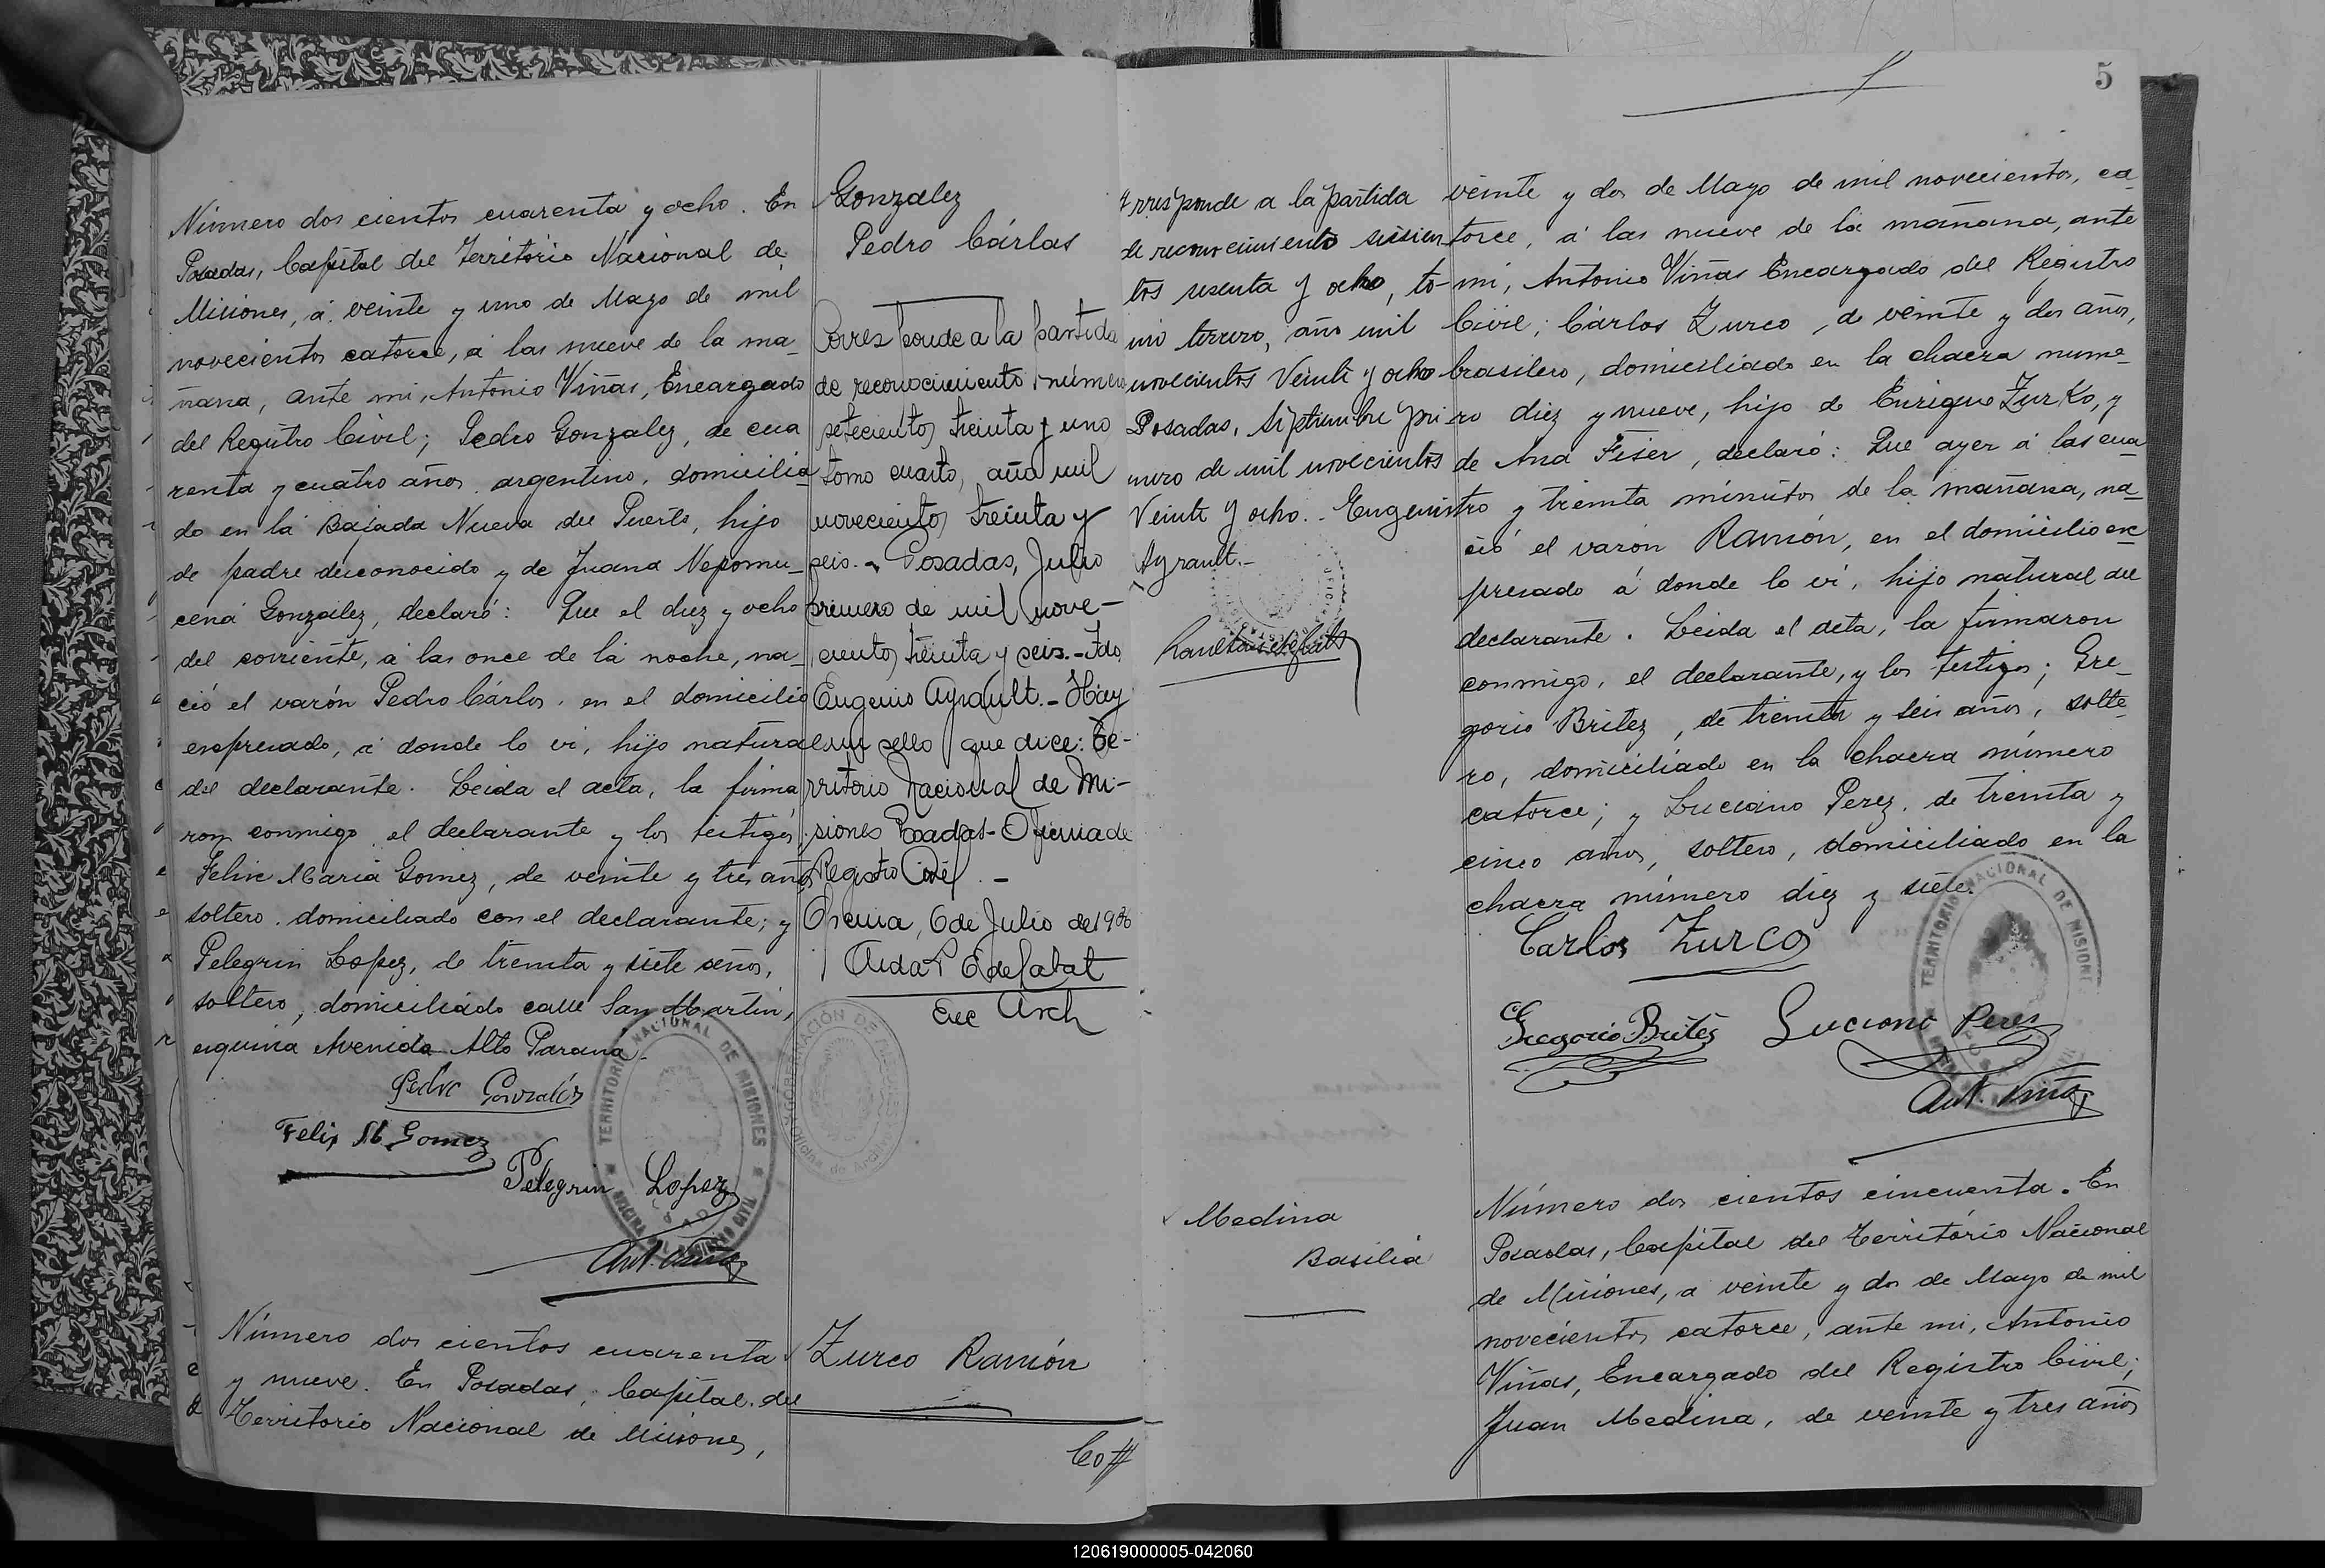 Número dos cientos cuarenta y ocho. En
Posadas, Capital del Território Nacional de
Misiones, á veinte y uno de Mayo de mil
novecientos catorce, á las nueve de la ma-
ñana, ante mi, Antonio Viñas, Encargado
del Registro Civil; Pedro Gonzalez, de cua
renta y cuatro años, argentino, domicilia-
do en la Bajada Nueva del Puerto, hijo
de padre desconocido y de Juana Nepomu-
cena Gonzalez, declaró: Que el diez y ocho
del corriente, á las once de la noche, na-
ció el varón Pedro Cárlos, en el domicilio
expresado, á donde lo vi, hijo natural
del declarante. Leida el acta, la firma
ron conmigo, el declarante y los testigos,
Felix Maria Gomez, de veinte y tres años
soltero, domiciliado con el declarante; y
Pelegrin Lopez, de treinta y siete años,
soltero, domiciliado calle San Martin,
esquina Avenida Alto Parana.
Pedro Gonzalez
Felix M. Gomez
Pelegrin Lopez
Ant. Viñas
TERRITORIO NACIONAL DE MISIONES
Número dos cientos cuarenta
y nueve. En Posadas, Capital del
Territorio Nacional de Misiones,
Gonzalez
Pedro Cárlos
Corresponde a la partida
de reconocimiento número
setecientos treinta y uno
tomo cuarto, año mil
novecientos treinta y
seis.- Posadas, Julio
primero de mil nove-
cientos treinta y seis.- Fdo
Eugenio Ayrault.- Hay
un sello que dice: Te-
rritorio Nacional de Mi-
siones Posadas- Oficina de
Registro Civil.-
Oficina, 6 de Julio de 1936
Enc Arch
Zurco Ramón
5
Corresponde a la partida
de reconocimiento seiscien
tos sesenta y ocho, to-
mo tercero, año mil
novecientos Veinte y ocho
Posadas, Septiembre pri
mero de mil novecientos
Veinte y ocho.- Eugenio
Ayrault.-
veinte y dos de Mayo de mil novecientos, ca-
torce, á las nueve de la mañana, ante
mi, Antonio Viñas Encargado del Registro
Civil; Cárlos Zurco, de veinte y dos años,
brasilero, domiciliado en la chacra nume-
ro diez y nueve, hijo de Enrique Zurko, y
de Ana Feser, declaró: Que ayer á las cua
tro y treinta minutos de la mañana, na-
ció el varón Ramón, en el domicilio ex-
presado á donde lo vi, hijo natural del
declarante. Leida el acta, la firmaron
conmigo, el declarante, y los testigos; Gre-
gorio Britez, de treinta y seis años, solte-
ro, domiciliado en la chacra número
catorce; y Luciano Perez, de treinta y
cinco años, soltero, domiciliado en la
chacra número diez y siete.
Carlos Zurco
Gregorio Britéz Luciano Peres
Ant. Viñas
TERRITORIO NACIONAL DE MISIONES
Medina
Basilia
Número dos cientos cincuenta. En
Posadas, Capital del Território Nacional
de Misiones, a veinte y dos de Mayo de mil
novecientos catorce, ante mi, Antonio
Viñas, Encargado del Registro Civil;
Juan Medina, de veinte y tres años
120619000005-042060